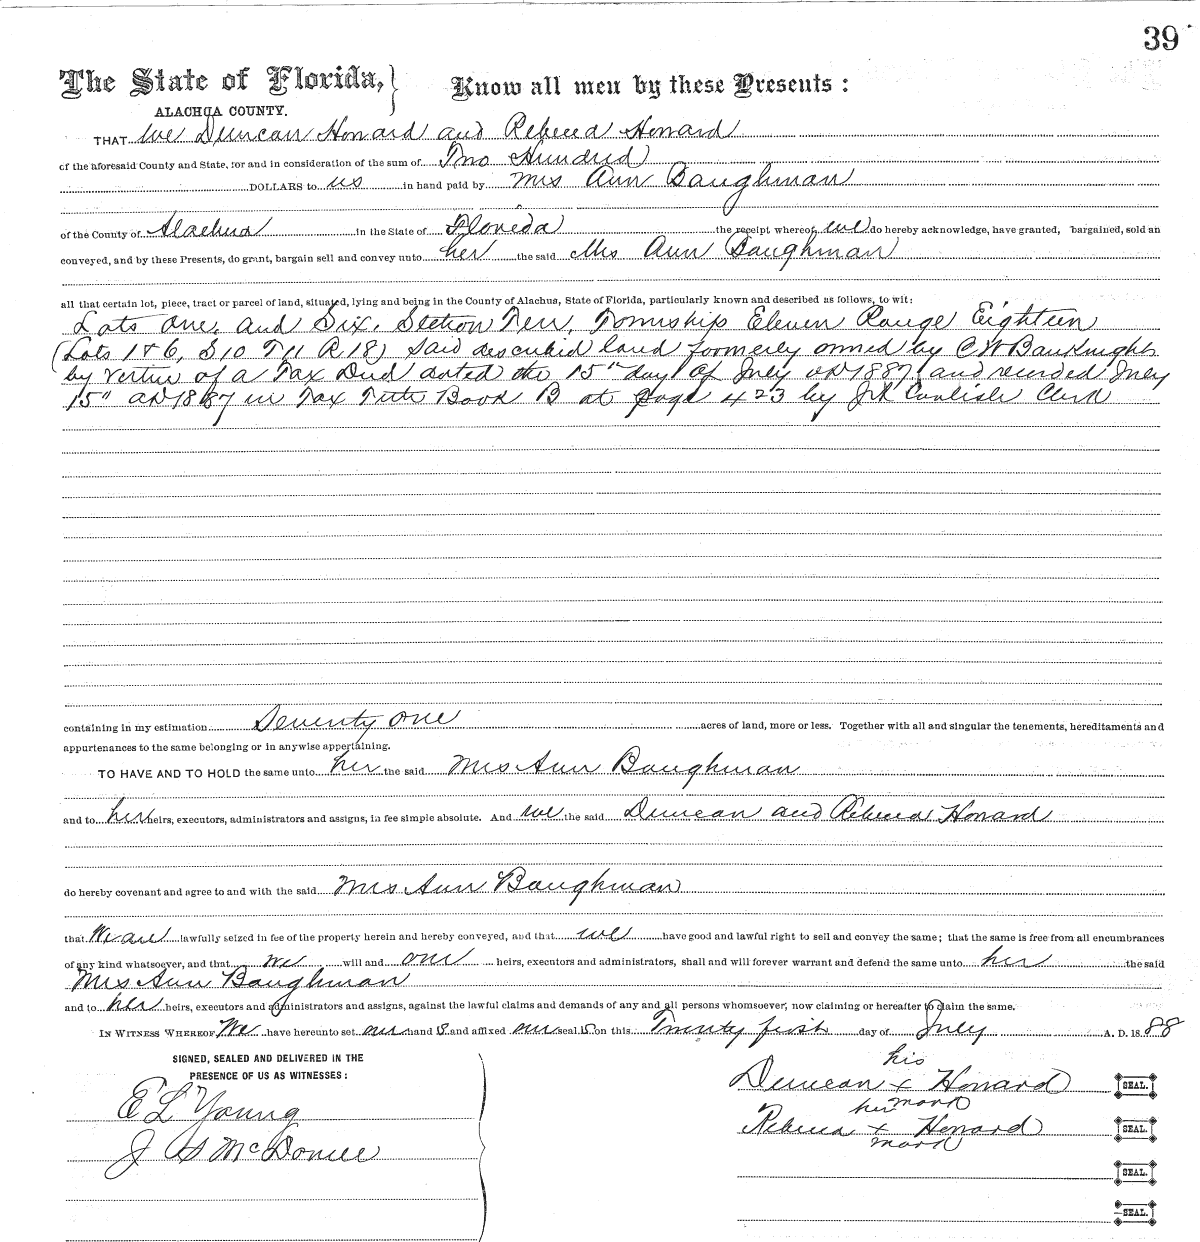 39
The State of Florida, } Know all men by these Presents :
ALACHUA COUNTY.
THAT We Duncan Howard and Rebecca Howard
of the aforesaid County and State, for and in consideration of the sum of Two Hundred
DOLLARS to us in hand paid by Mrs Ann Baughman
of the County of Alachua in the State of Florida the receipt whereof we do hereby acknowledge, have granted, bargained, sold an
conveyed, and by these Presents, do grant, bargain sell and convey unto her the said Mrs Ann Baughman
all that certain lot, piece, tract or parcel of land, situated, lying and being in the County of Alachus, State of Florida, particularly known and described as follows, to wit:
Lots one, and Six, Section Ten, Township Eleven Range Eighteen
(Lots 1 & 6, S 10 T 11 R 18) Said described land formerly owned by C W Bauknight
by vertue of a Tax Deed dated the 15th day of July AD 1887, and recorded July
15" AD 1887 in Tax Title Book B at page 423 by Carlisle Clerk
containing in my estimation Seventy one acres of land, more or less. Together with all and singular the tenements, hereditaments and
appurtenances to the same belonging or in anywise appertaining.
TO HAVE AND TO HOLD the same unto her the said Mrs Ann Baughman
and to her heirs, executors, administrators and assigns, in fee simple absolute. And we the said Duncan and Rebecca Howard
do hereby covenant and agree to and with the said Mrs Ann Baughman
that We are lawfully seized in fee of the property herein and hereby conveyed, and that we have good and lawful right to sell and convey the same; that the same is free from all encumbrances
of any kind whatsoever, and that we will and our heirs, executors and administrators, shall and will forever warrant and defend the same unto her the said
Mrs Ann Baughman
and to her heirs, executors and administrators and assigns, against the lawful claims and demands of any and all persons whomsoever, now claiming or hereafter to claim the same.
IN WITNESS WHEREOF We have hereunto set our hand S and affixed our seal S on this Twenty first day of July A. D. 18 88
SIGNED, SEALED AND DELIVERED IN THE
PRESENCE OF US AS WITNESSES :
E L Young
J S McDonell
his
Duncan x Howard SEAL.
mark
her
Rebecca x Howard SEAL.
mark
SEAL.
SEAL.